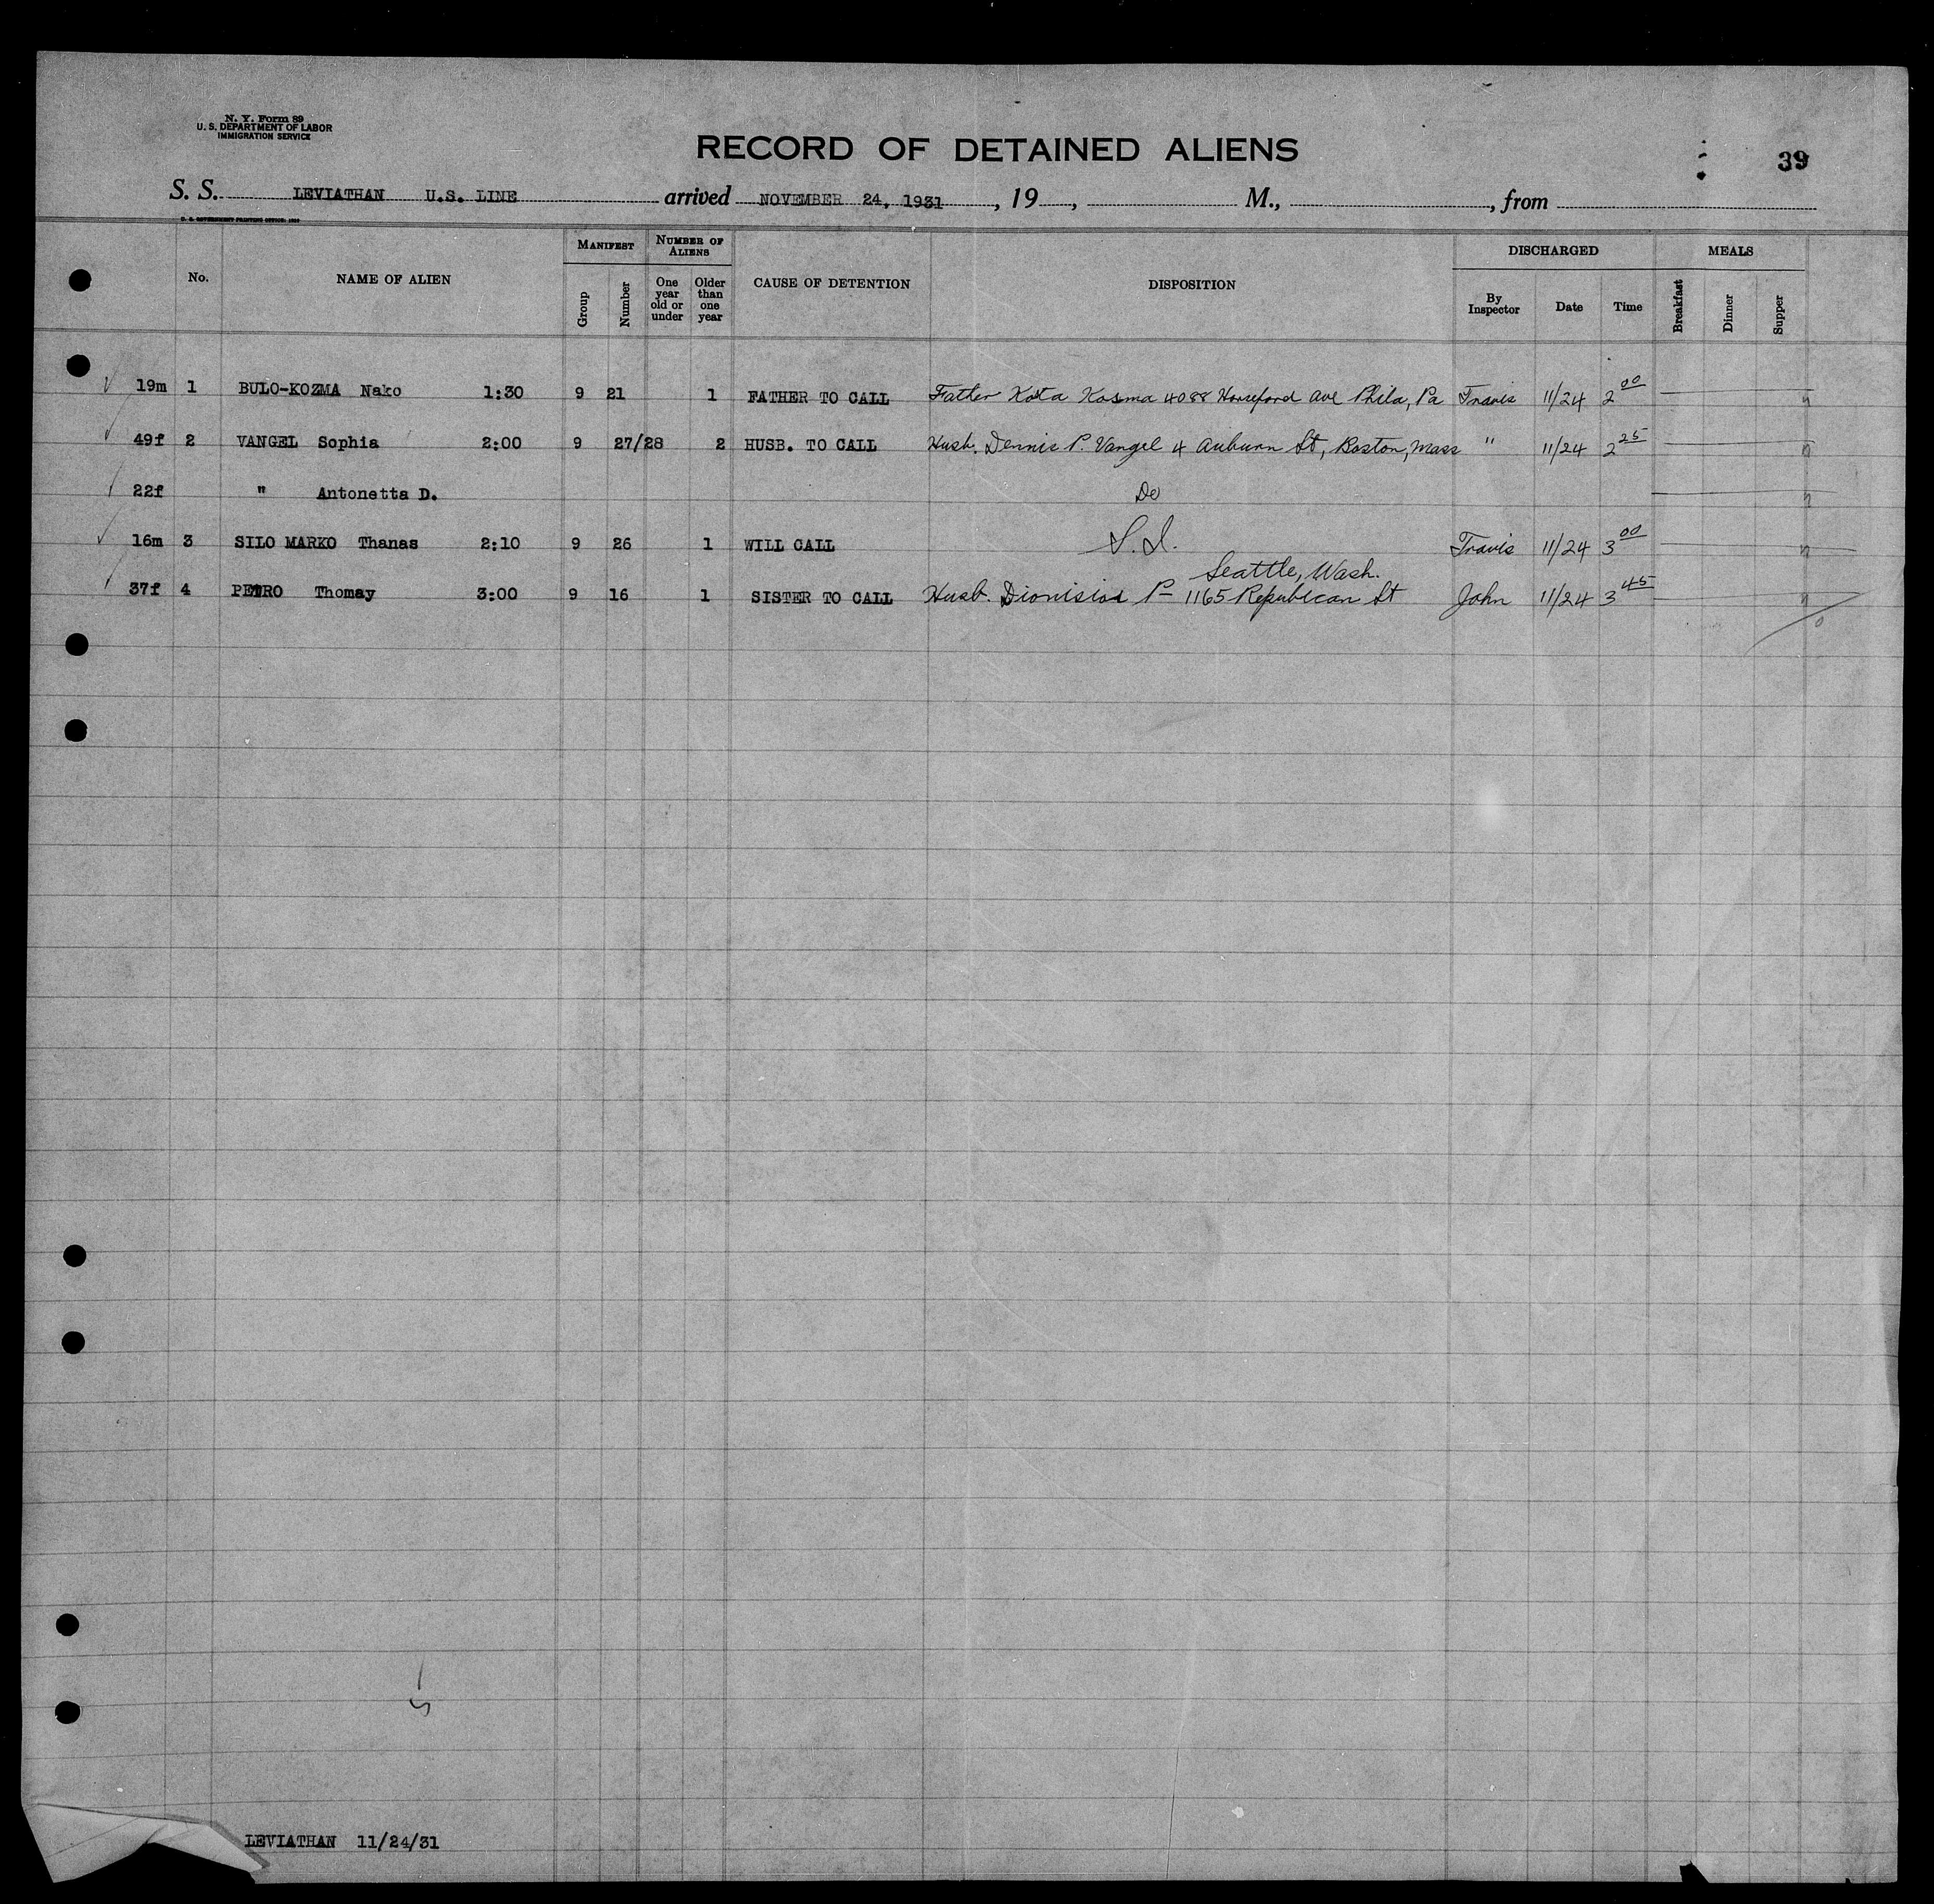 N. Y. Form 89
U. S. DEPARTMENT OF LABOR
IMMIGRATION SERVICE
RECORD OF DETAINED ALIENS
39
S. S. LEVIATHAN U.S. LINE arrived NOVEMBER 24, 1931, 19 , M., , from
U. S. GOVERNMENT PRINTING OFFICE:
No. NAME OF ALIEN MANIFEST Group Number NUMBER OF ALIENS One year old or under Older than one year CAUSE OF DETENTION DISPOSITION DISCHARGED By Inspector Date Time MEALS Breakfast Dinner Supper
19m 1 BULO-KOZMA Nako 1:30 9 21 1 FATHER TO CALL Father Kota Kosma 4088 Ave Phila, Pa Travis 11/24 2 00
49f 2 VANGEL Sophia 2:00 9 27/28 2 HUSB. TO CALL Husb. Dennis P. Vangel 4 Auburn St, Boston, Mass " 11/24 2 25
22f " Antonetta D. Do
16m 3 SILO MARKO Thanas 2:10 9 26 1 WILL CALL S.I. Travis 11/24 3 00
Seattle, Wash.
37f 4 PETRO Thomay 3:00 9 16 1 SISTER TO CALL Husb. Dionisios P— 1165 Republican St John 11/24 3 45
LEVIATHAN 11/24/31